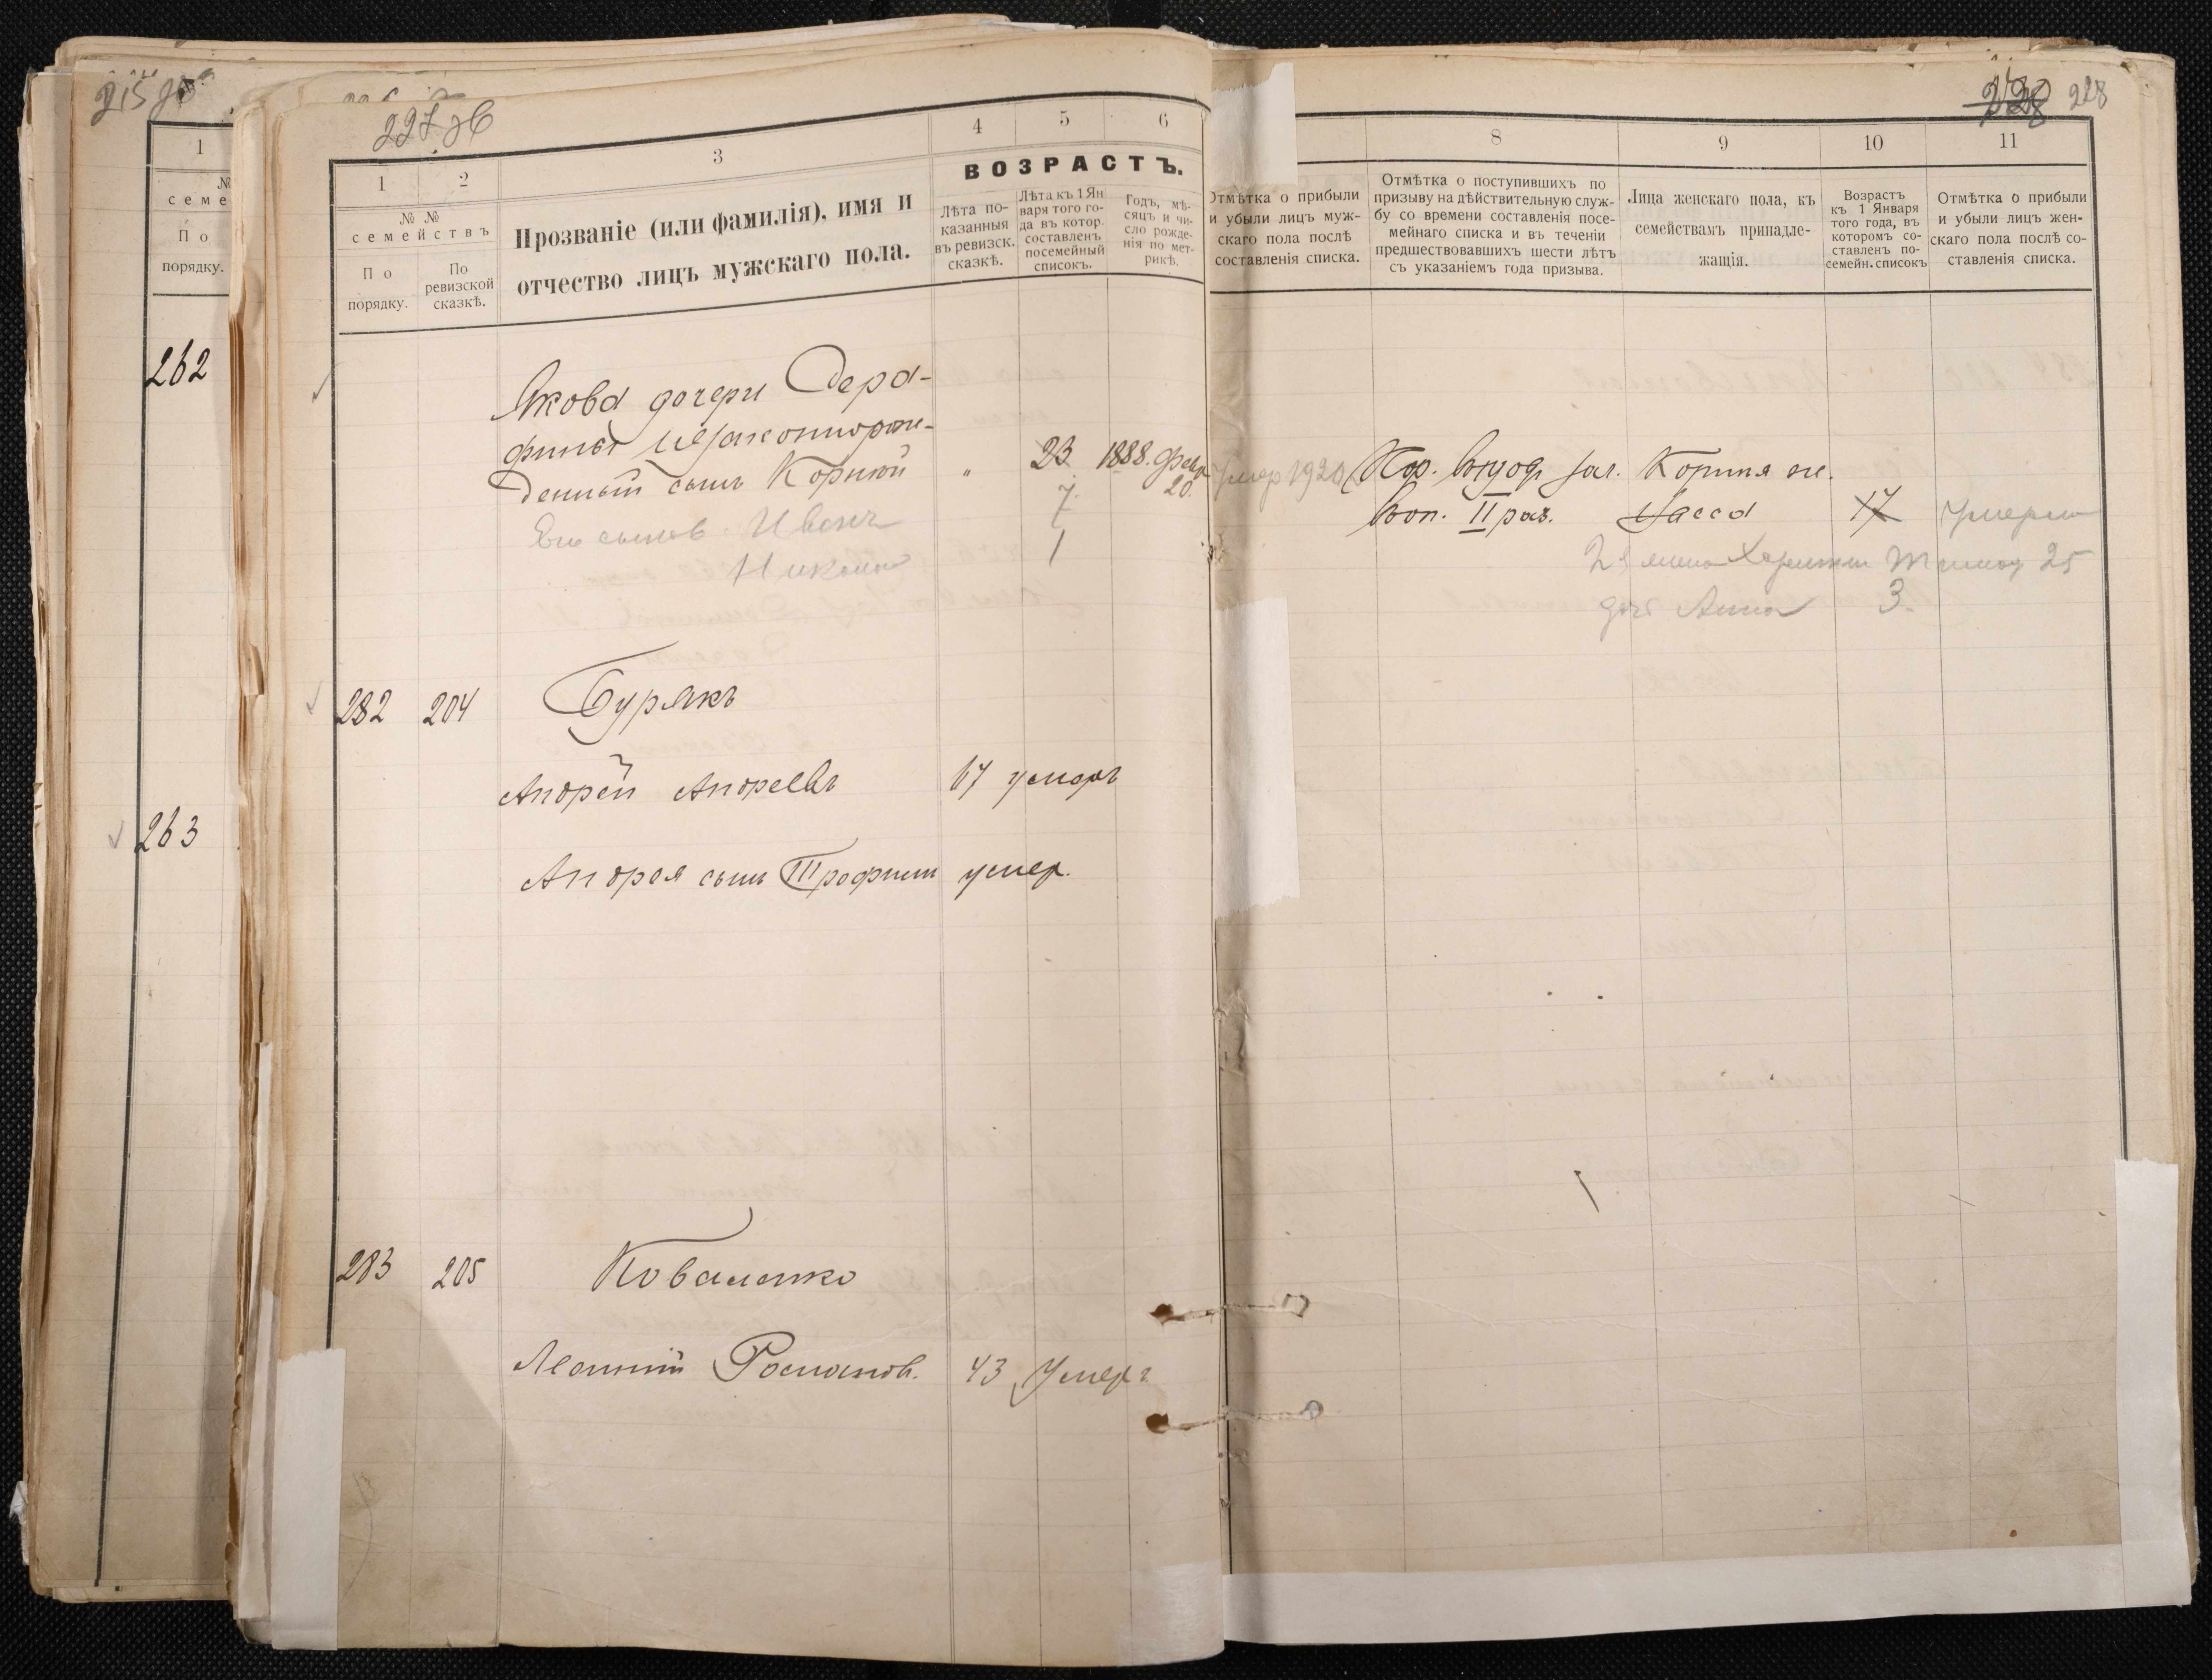 215 зв
1
№
семе
По
порядку.
262
263
227 зв
1
2
3
4
5
6
ВОЗРАСТЪ.
№ №
семействъ
По
порядку.
По
ревизской
сказкѣ.
Прозваніе (или фамилія), имя и
отчество лицъ мужскаго пола.
Лѣта по-
казанныя
въ ревизск.
сказкѣ.
Лѣта къ 1 Ян
варя того го-
да въ котор.
составленъ
посемейный
списокъ.
Годъ, мѣ-
сяцъ и чи-
сло рожде-
нія по мет-
рикѣ.
Якова дочери Сера-
фимы незаконнорож-
денный сынъ Корній
" 23 1888. февр.
20.
Его сынов. Иванъ 7.
Никола 1
282 204 Бурякъ
Андрей Андреевъ 67 умеръ
Андрея сынъ Трофим умер.
283 205 Коваленко
Леонтій Романов. 43 Умеръ
228
8
9
10
11
Отмѣтка о прибыли
и убыли лицъ муж-
скаго пола послѣ
составленія списка.
Отмѣтка о поступившихъ по
призыву на дѣйствительную служ-
бу со времени составленія посе-
мейнаго списка и въ теченіи
предшествовавшихъ шести лѣтъ
съ указаніемъ года призыва.
Лица женскаго пола, къ
семействамъ принадле-
жащія.
Возрастъ
къ 1 Января
того года, въ
которомъ со-
ставленъ по-
семейн. списокъ
Отмѣтка о прибыли
и убыли лицъ жен-
скаго пола послѣ со-
ставленія списка.
Умер 1920
зач.
II раз.
Корнія же.
Васса 17 Умерла
2я жена 25
доч Анна 3.